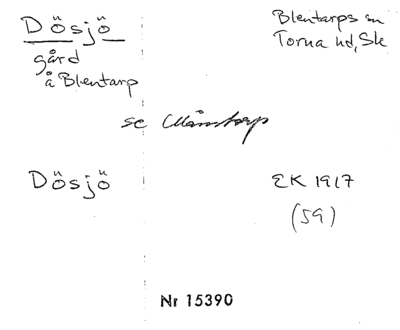 Dösjö
gård
å Blentarp
Blentarps sn
Torna hd, Sk
se Månstorp
Dösjö
EK 1917
(59)
Nr 15390